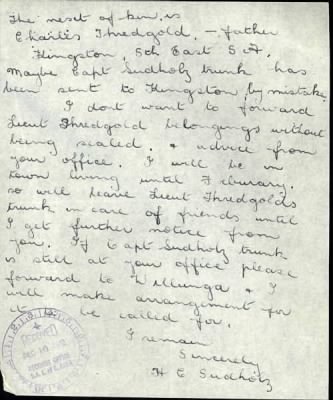 The next of kin is
Charles Thredgold. - father
Kingston, 5th East S.A.
Maybe Capt Sudholz trunk has
been sent to Kingston by mistake
I dont want to forward
Lieut Thredgold belongings without
being sealed. & advice from
your office. I will be in
town living until Feburary.
so will leave Lieut Thredgolds
trunk in care of friends until
I get further notice from
you. If Capt Sudholz trunk
is still at your office please
forward to Willunga & I
will make arrangement for
it to be called for.
I remain
Sincerely
H E Sudholz
DEC 10